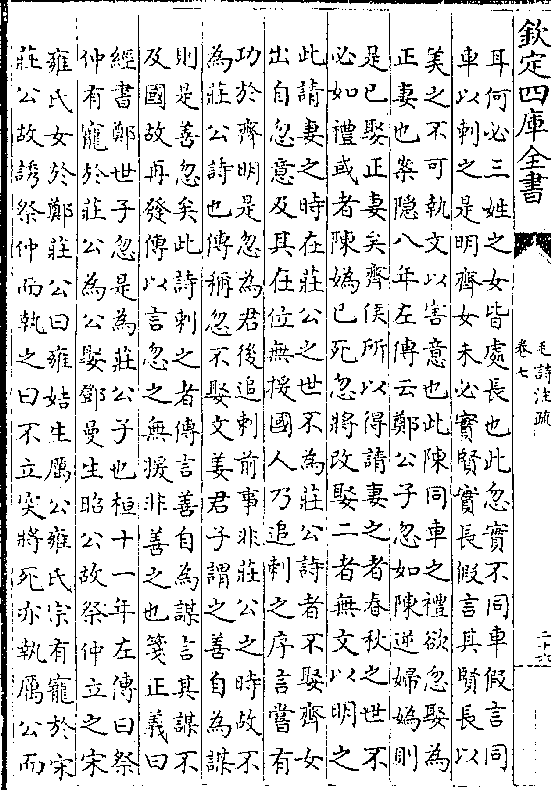 欽定四庫全書
毛詩注疏
卷七
二十六
耳何必三姓之女皆處長也此忽實不同車假言同
車以刺之是明齊女未必實賢實長假言其賢長以
美之不可執文以害意也此陳同車之禮欲忽娶為
正妻也案隐八年左傳云鄭公子忽如陳逆婦媯則
是已娶正妻矣齊侯所以得請妻之者春秋之世不
必如禮或者陳媯已死忽將改娶二者無文以明之
此請妻之時在莊公之世不為莊公詩者不娶齊女
出自忽意及其在位無援國人乃追刺之序言嘗有
功於齊明是忽為君後追刺前事非莊公之時故不
為莊公詩也傳稱忽不娶文姜君子謂之善自為謀
則是善忽矣此詩刺之者傳言善自為謀言其謀不
及國故再發傳以言忽之無援非善之也箋正義曰
經書鄭世子忽是為莊公子也桓十一年左傳曰祭
仲有寵於莊公為公娶鄧曼生昭公故祭仲立之宋
雍氏女於鄭莊公曰雍姞生厲公雍氏宗有寵於宋
莊公故誘祭仲而執之曰不立突將死亦執厲公而